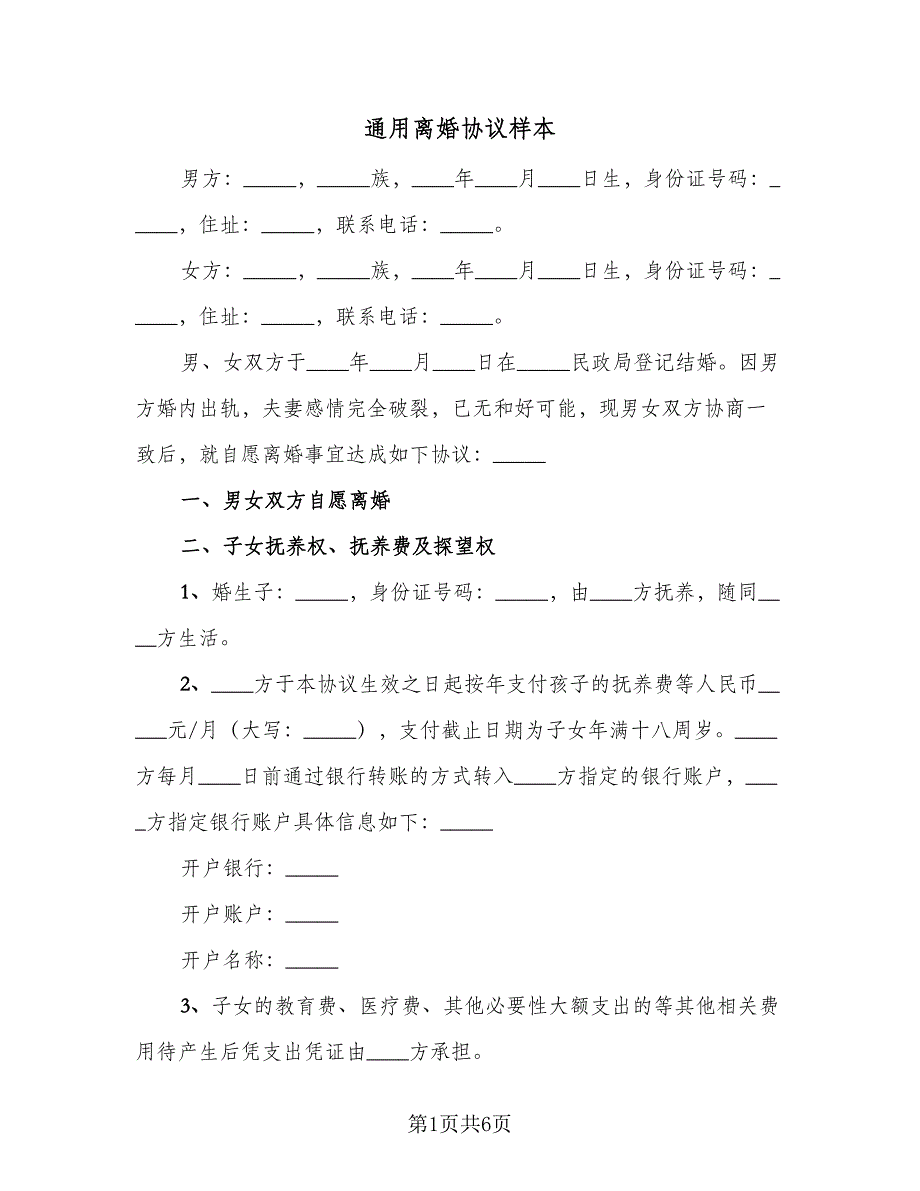 通用离婚协议样本
男方：_____，_____族，____年____月____日生，身份证号码：_
____，住址：_____，联系电话：_____。
女方：_____，_____族，____年____月____日生，身份证号码：_
____，住址：_____，联系电话：_____。
男、女双方于____年____月____日在_____民政局登记结婚。因男
方婚内出轨，夫妻感情完全破裂，已无和好可能，现男女双方协商一
致后，就自愿离婚事宜达成如下协议：_____
一、男女双方自愿离婚
二、子女抚养权、抚养费及探望权
1、婚生子：_____，身份证号码：_____，由____方抚养，随同__
__方生活。
2、____方于本协议生效之日起按年支付孩子的抚养费等人民币__
___元/月（大写：_____），支付截止日期为子女年满十八周岁。____
方每月____日前通过银行转账的方式转入____方指定的银行账户，___
_方指定银行账户具体信息如下：_____
开户银行：_____
开户账户：_____
开户名称：_____
3、子女的教育费、医疗费、其他必要性大额支出的等其他相关费
用待产生后凭支出凭证由____方承担。
第1页共6页